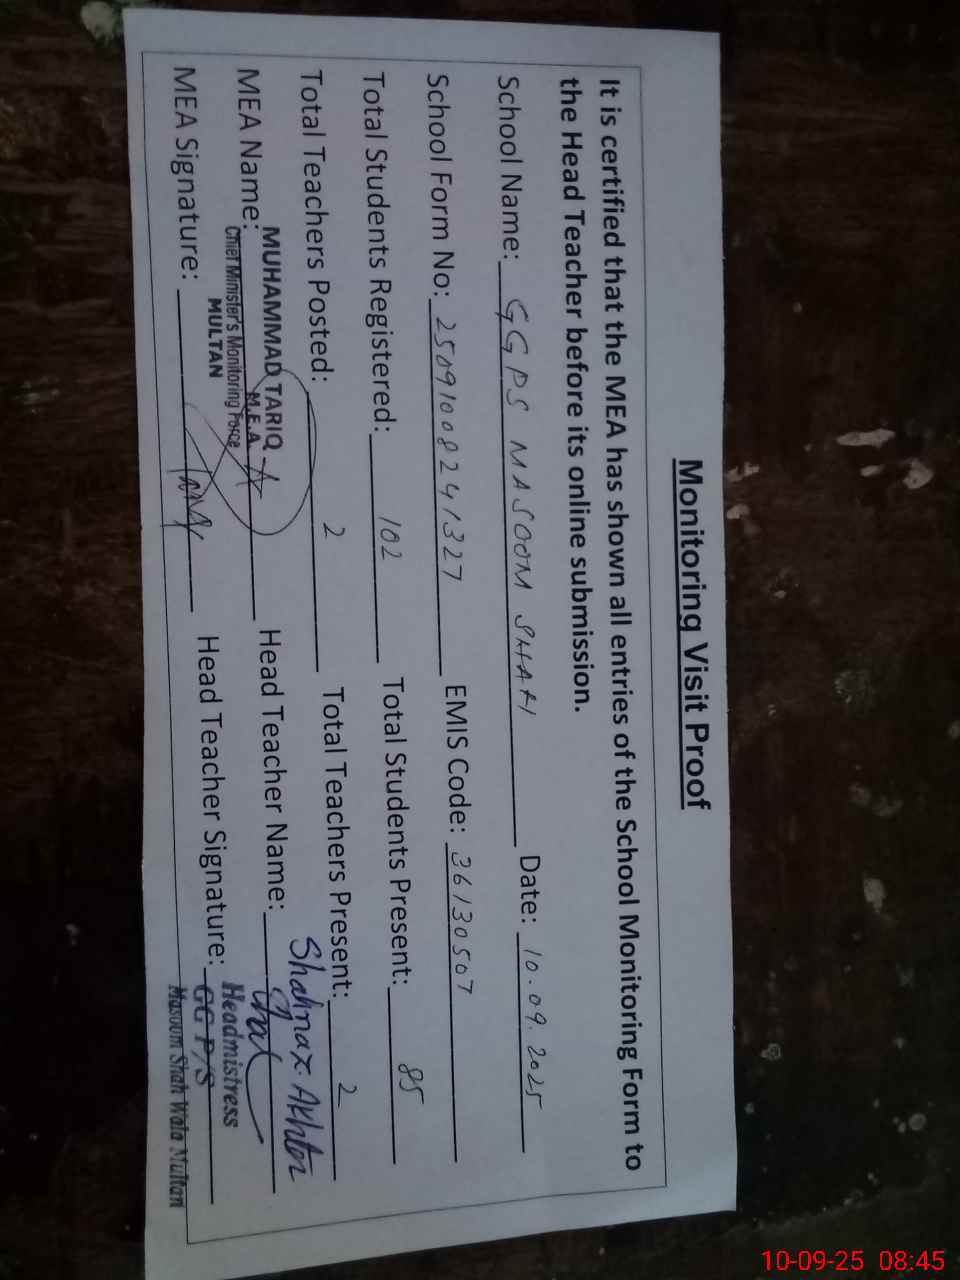 Monitoring Visit Proof
It is certified that the MEA has shown all entries of the School Monitoring Form to
the Head Teacher before its online submission.
School Name: GGPS MASOOM SHAH Date: 10.09.2025
School Form No: 25091008241327 EMIS Code: 36130507
Total Students Registered: 102 Total Students Present: 85
Total Teachers Posted: 2 Total Teachers Present: 2
MEA Name: MUHAMMAD TARIQ Head Teacher Name: Shahnaz Akhter
M.E.A.
Chief Minister's Monitoring Force
MULTAN
MEA Signature: Head Teacher Signature:
Headmistress
GG P/S
Masoom Shah Wala Multan
10-09-25 08:45